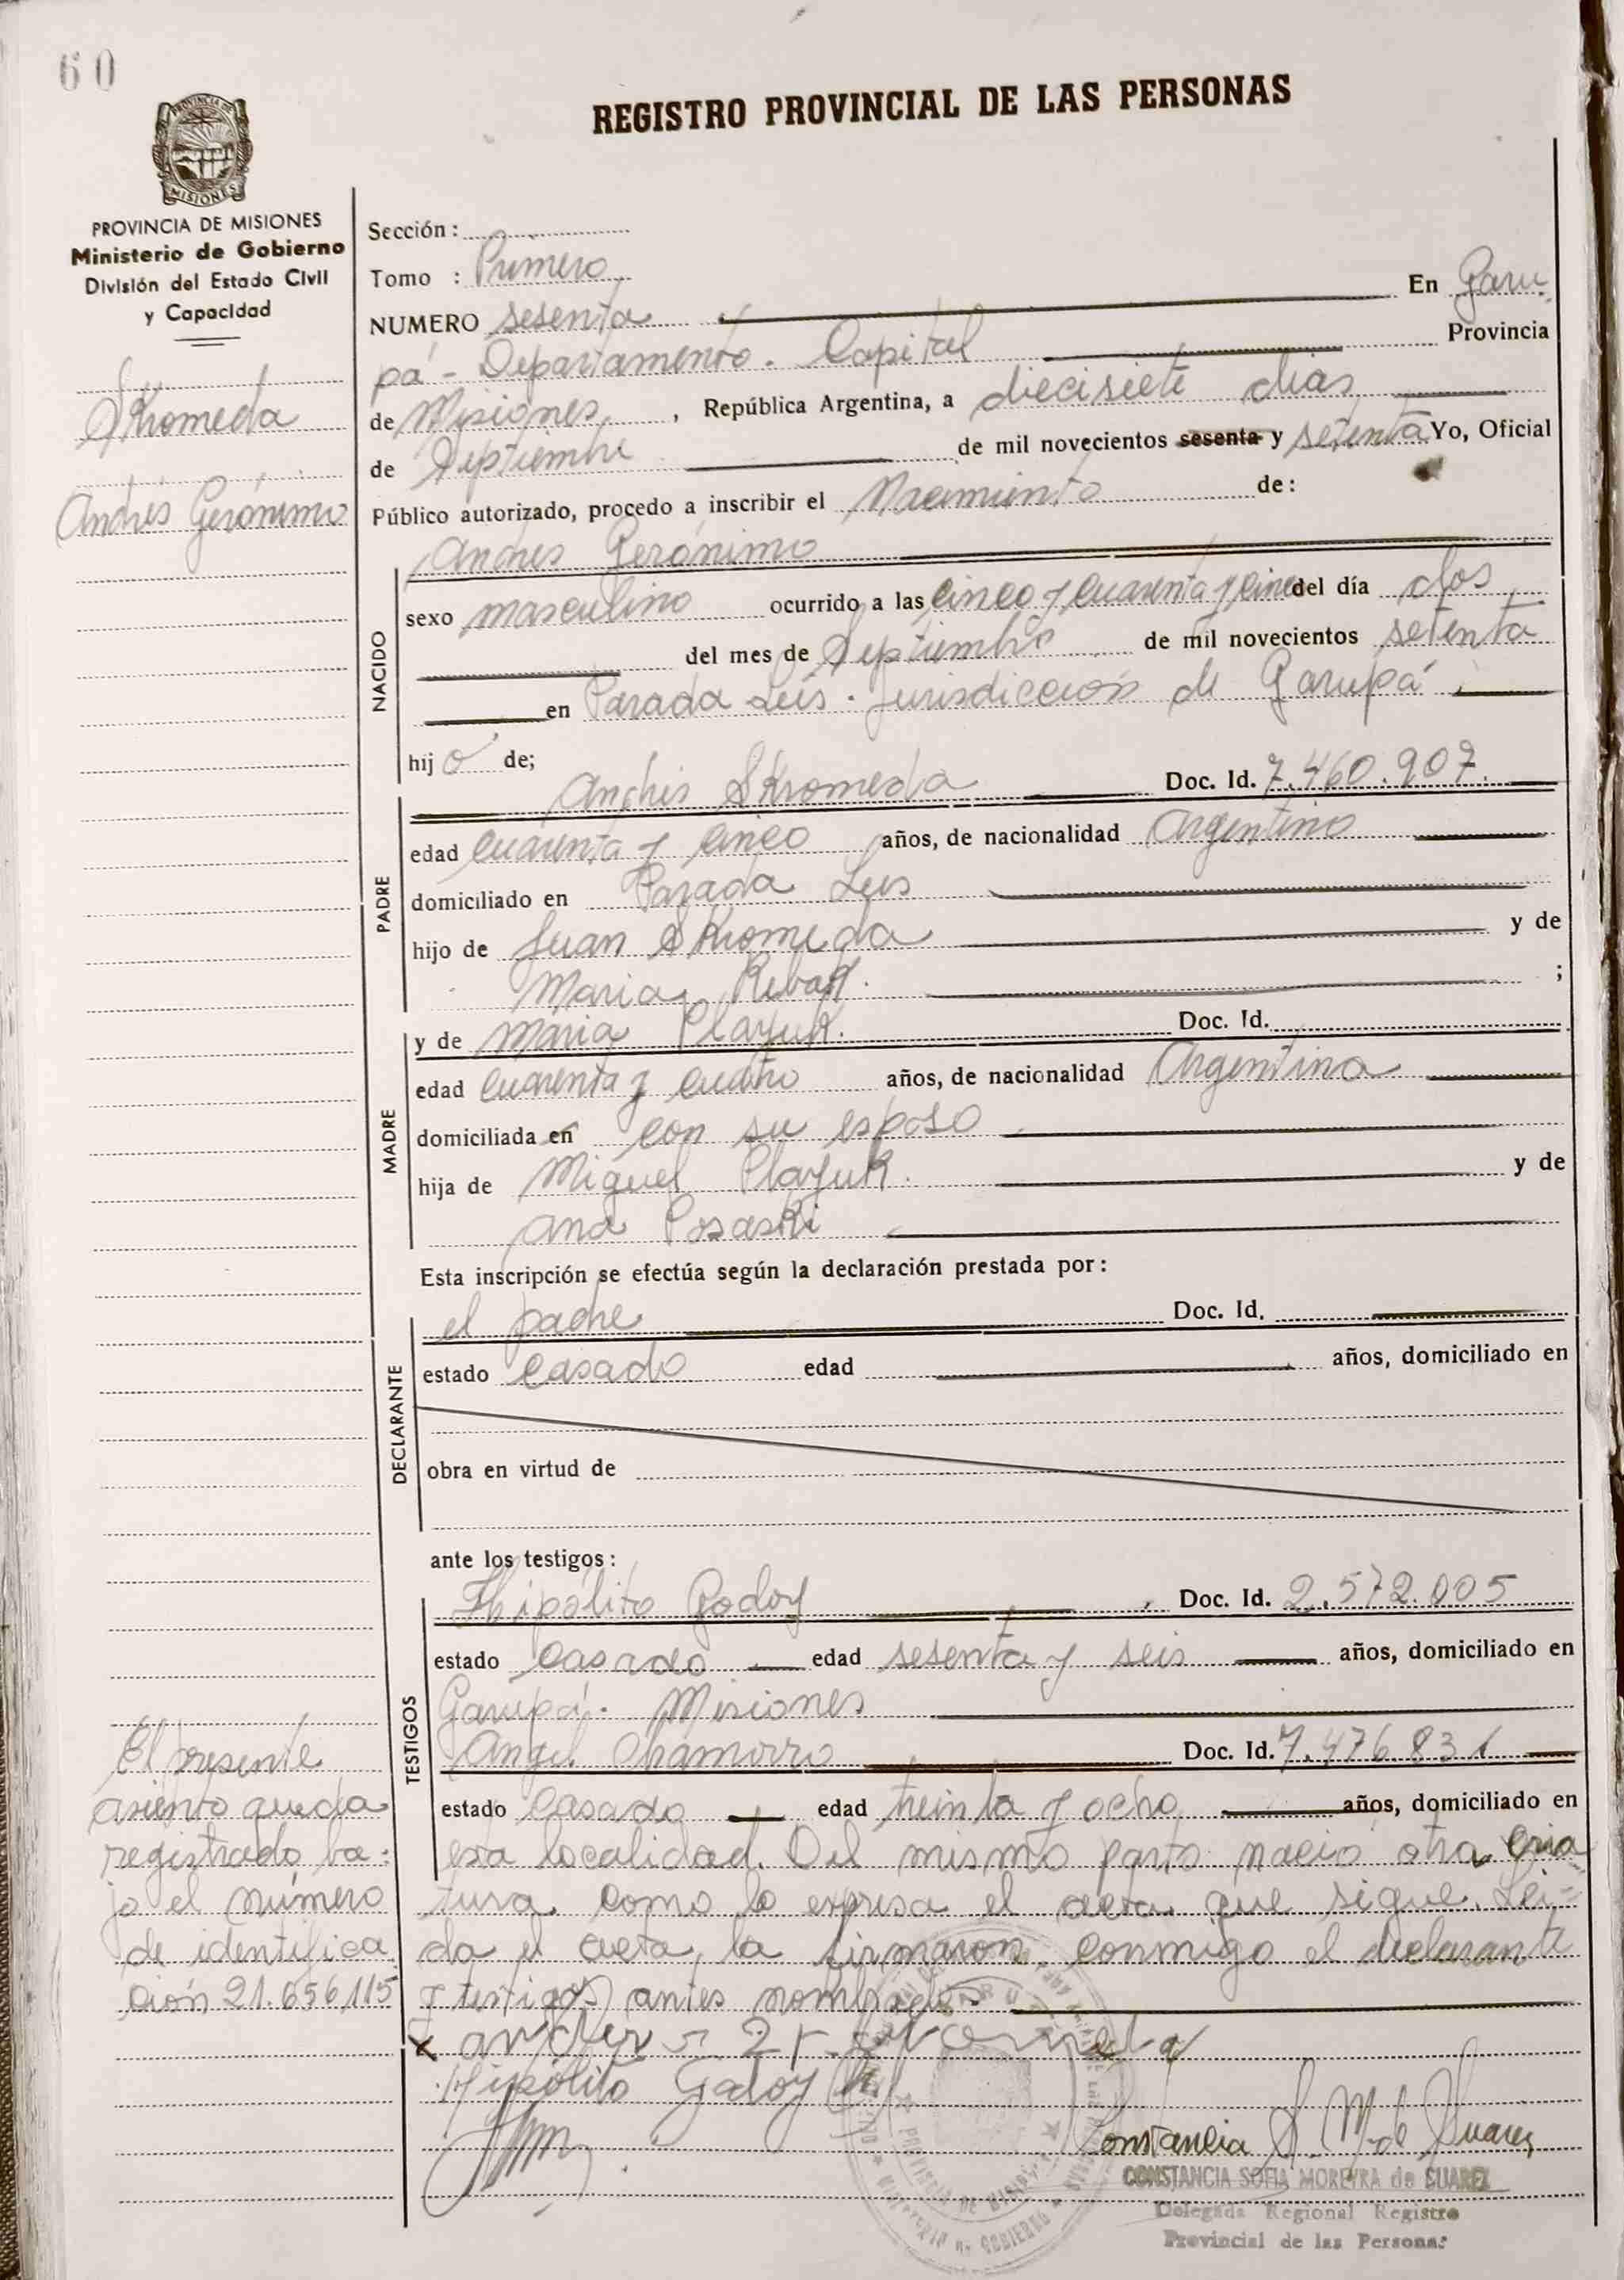 60
REGISTRO PROVINCIAL DE LAS PERSONAS
PROVINCIA DE
MISIONES
PROVINCIA DE MISIONES
Ministerio de Gobierno
División del Estado Civil
y Capacidad
Skromeda
Andrés Gerónimo
Sección:
Tomo : Primero
NUMERO sesenta En Garu
pá - Departamento. Capital Provincia
de Misiones, República Argentina, a diecisiete dias
de Septiembre de mil novecientos sesenta y setenta Yo, Oficial
Público autorizado, procedo a inscribir el Nacimiento de:
Andres Gerónimo
NACIDO
sexo masculino ocurrido a las cinco y cuarenta y cinco del día dos
del mes de Septiembre de mil novecientos setenta
en Parada Leis. Jurisdicción de Garupá
hijo de;
PADRE
Andrés Skromeda Doc. Id. 7.460.907.
edad cuarenta y cinco años, de nacionalidad Argentino
domiciliado en Parada Leis
hijo de Juan Skromeda y de
Maria ;
MADRE
y de Maria Plazuk. Doc. Id.
edad cuarenta y cuatro años, de nacionalidad Argentina
domiciliada en con su esposo
hija de Miguel Plazuk. y de
Ana Posaski
Esta inscripción se efectúa según la declaración prestada por:
DECLARANTE
el padre Doc. Id.
estado casado edad años, domiciliado en
obra en virtud de
ante los testigos:
TESTIGOS
Hipólito Godoy Doc. Id. 2.572.005
estado casado edad sesenta y seis años, domiciliado en
Garupá. Misiones
Angel Chamorro Doc. Id. 7.476.831
estado casado edad treinta y ocho años, domiciliado en
esta localidad. Del mismo parto nació otra cria
tura como lo expresa el acta que sigue. Lei-
da el acta, la firmaron conmigo el declarante
y testigos antes nombrados
El presente
asiento queda
registrado ba-
jo el número
de identifica
ción 21.656.115
x
Hipólito Godoy
Constancia S. M. de Suarez
CONSTANCIA SOFIA MOREYRA de SUAREZ
Delegada Regional Registro
Provincial de las Personas